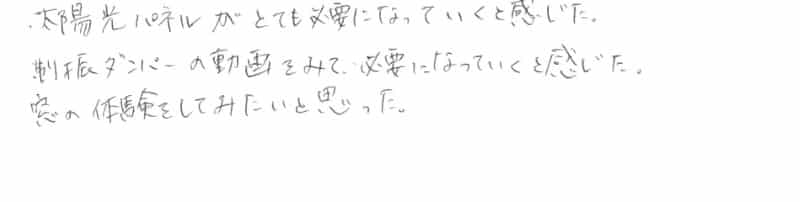 ・太陽光パネルがとても必要になっていくと感じた。
制振ダンパーの動画をみて、必要になっていくと感じた。
窓の体験をしてみたいと思った。